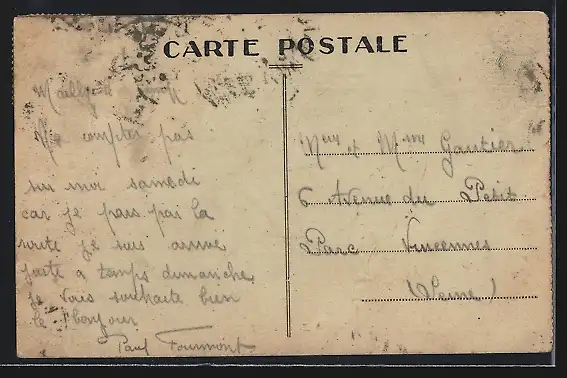 CARTE POSTALE
Mailly
Ne compter pas
sur moi samedi
car je pars pas la
suis arrivé
juste a temps dimanche
je vous souhaite bien
le bonjour
Paul Fourmont
Meur et Mme Gautier
6 Avenue du Petit
Parc Vincennes
(Seine)